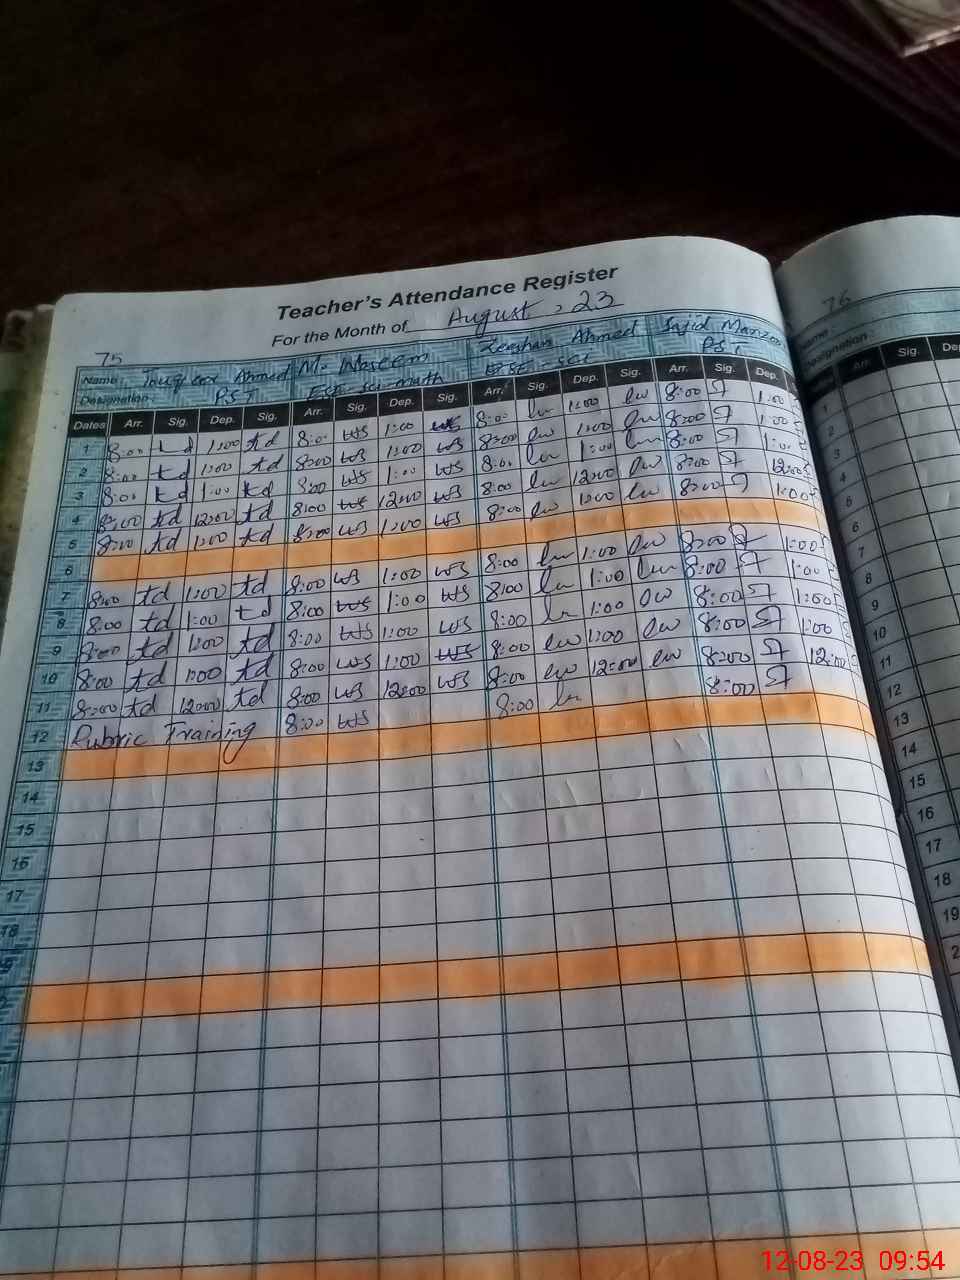 Teacher's Attendance Register
For the Month of August, 23
75 76
Name: Touqeer Ahmed M. Naseem Zeeshan Ahmed Sajid Manzoor Name:
Designation: PST ESE sci-math ESE-sci PST Designation:
Dates Arr. Sig. Dep. Sig. Arr. Sig. Dep. Sig. Arr. Sig. Dep. Sig. Arr. Sig. Dep. Arr. Sig. Dep
1 8:00 td 1:00 td 8:00 WS 1:00 WS 8:00 1:00 8:00 1:00
2 8:00 td 1:00 td 8:00 WS 1:00 WS 8:00 1:00 8:00 1:00
3 8:00 td 1:00 td 8:00 WS 1:00 WS 8:00 1:00 8:00 1:00
4 8:00 td 12:00 td 8:00 WS 12:00 WS 8:00 12:00 8:00 12:00
5 8:00 td 1:00 td 8:00 WS 1:00 WS 8:00 1:00 8:00 1:00
6
7 8:00 td 1:00 td 8:00 WS 1:00 WS 8:00 1:00 8:00 1:00
8 8:00 td 1:00 td 8:00 WS 1:00 WS 8:00 1:00 8:00 1:00
9 8:00 td 1:00 td 8:00 WS 1:00 WS 8:00 1:00 8:00 1:00
10 8:00 td 1:00 td 8:00 WS 1:00 WS 8:00 1:00 8:00 1:00
11 8:00 td 12:00 td 8:00 WS 12:00 WS 8:00 12:00 8:00 12:00
12 Rubric Training 8:00 WS 8:00 8:00
13
14
15
16
17
18
1
2
3
4
5
6
7
8
9
10
11
12
13
14
15
16
17
18
19
12-08-23 09:54